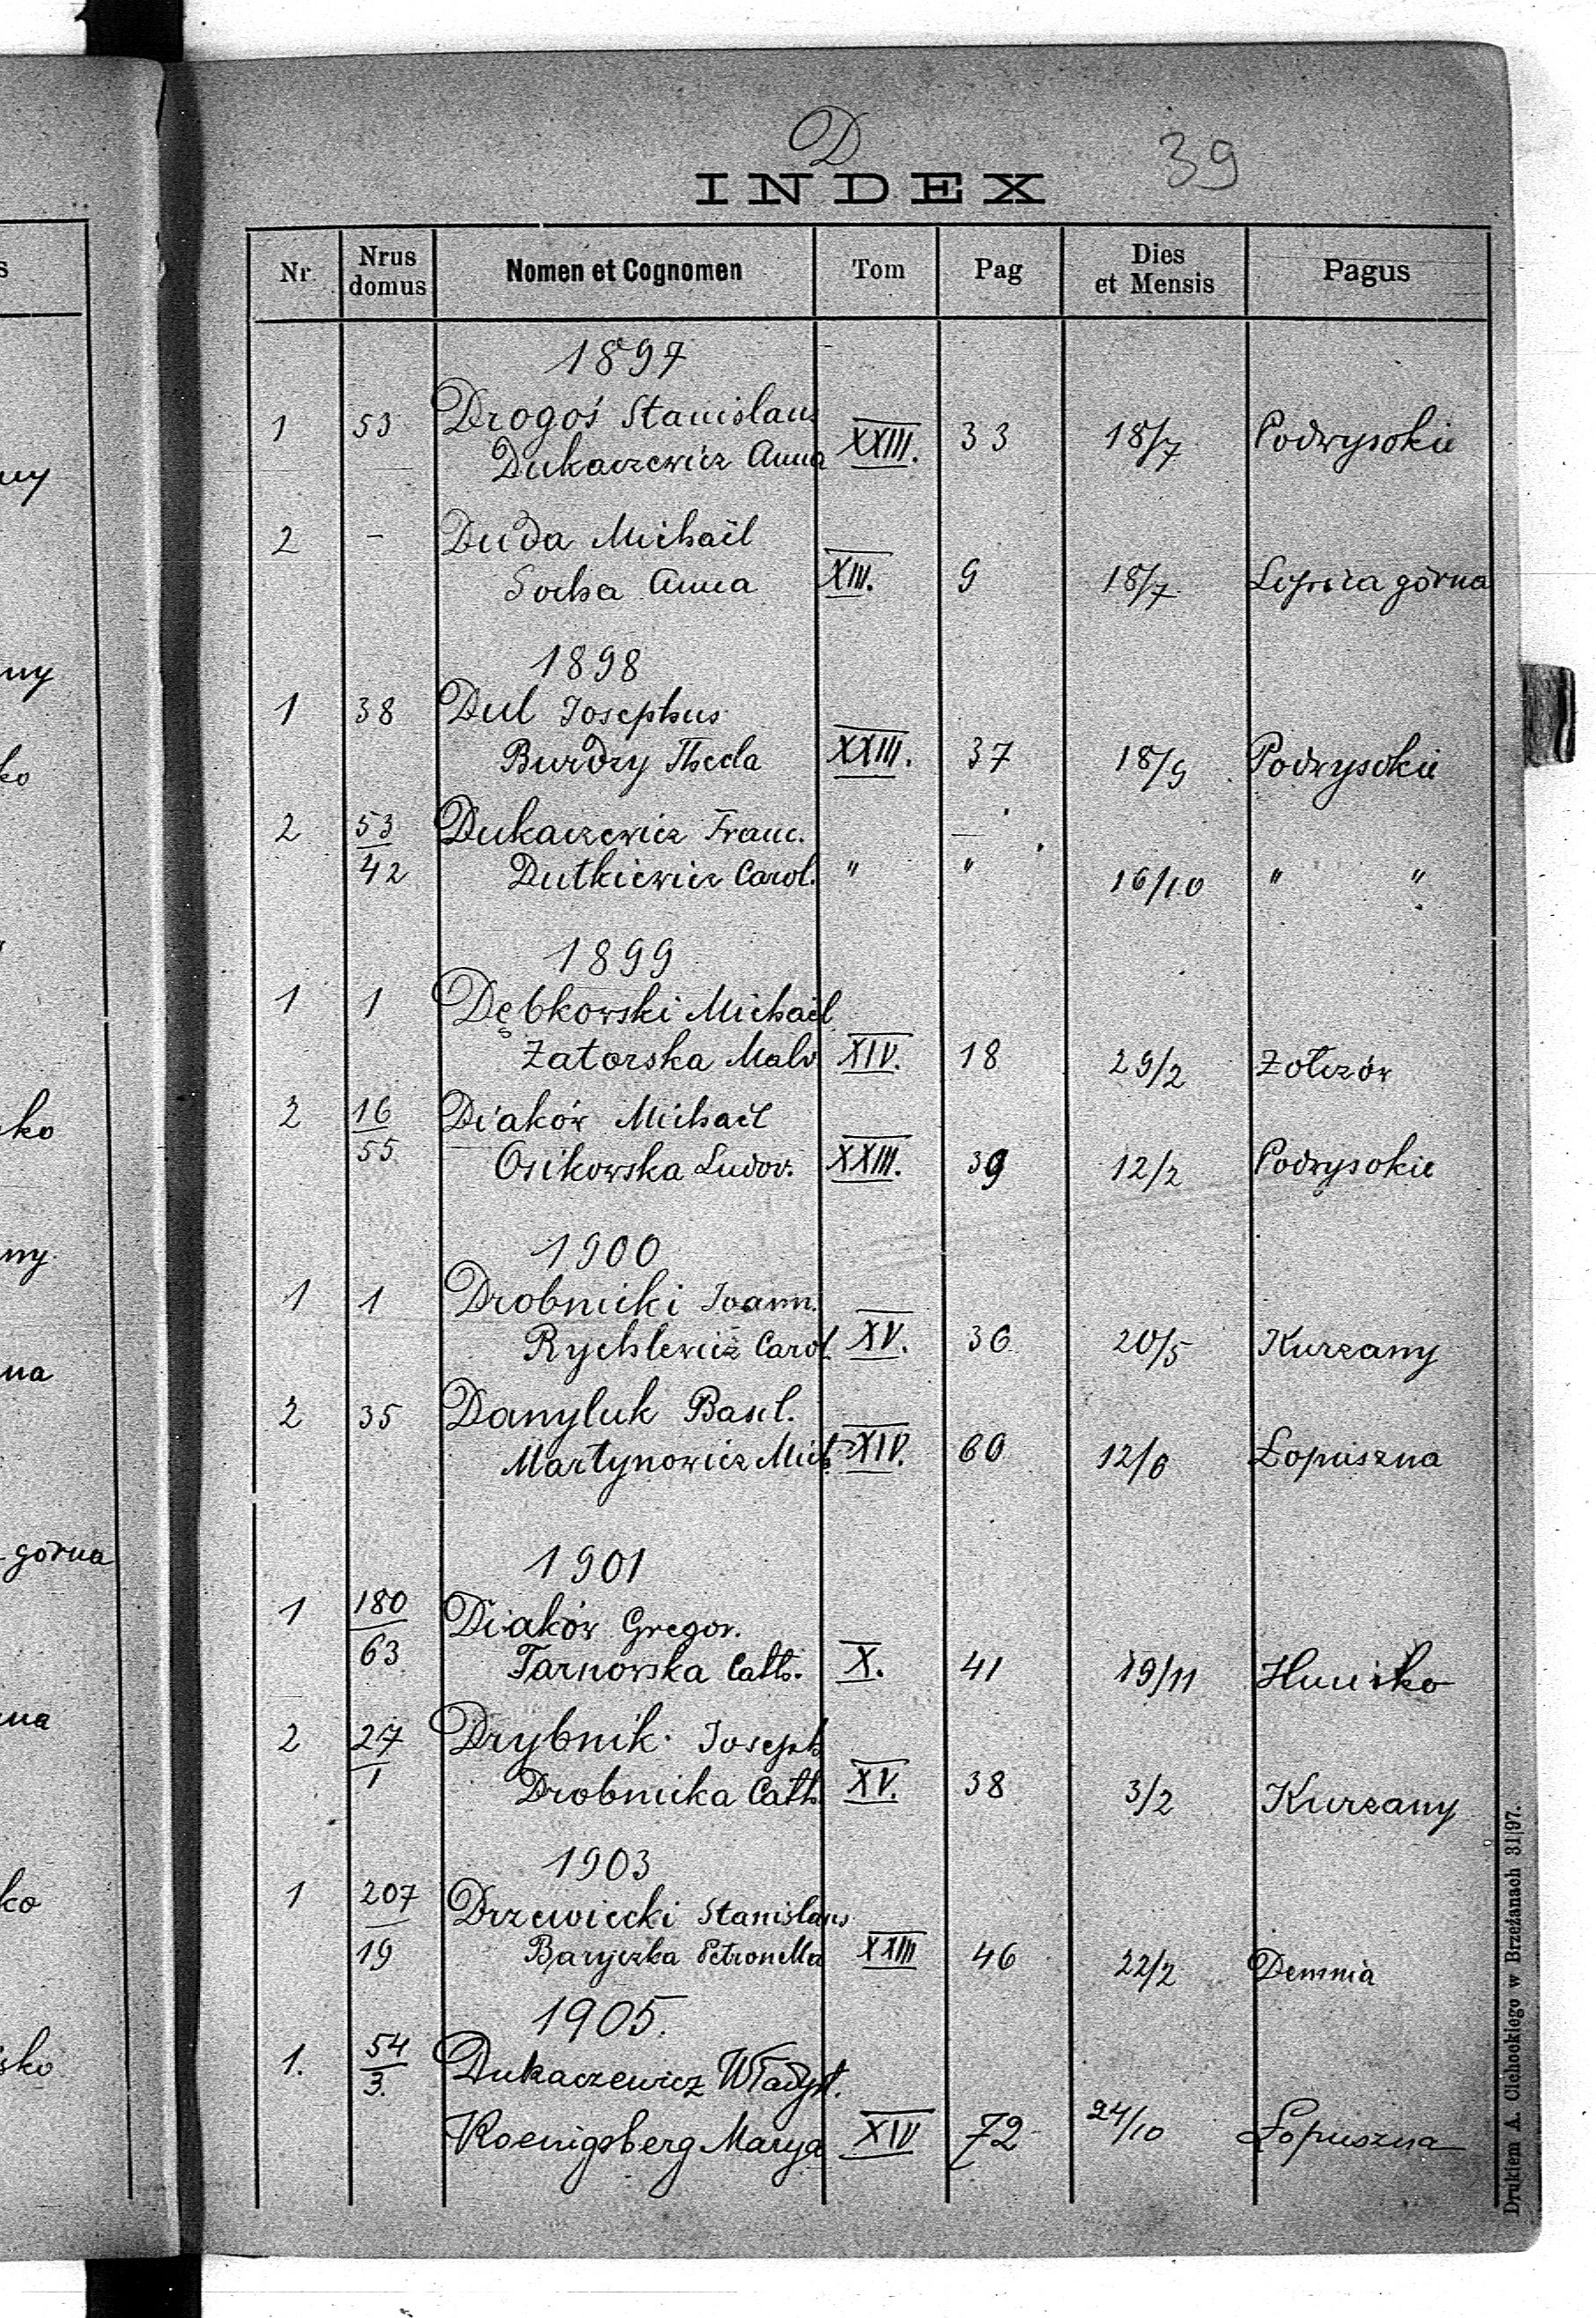 D
39
INDEX
Nr. Nrus domus Nomen et Cognomen Tom Pag Dies et Mensis Pagus
1897
1 53 Drogoś Stanislaus
Dukaczewicz Anna XXIII. 33 18/7 Podwysokie
2 - Duda Michaël
Socha Anna XIII. 9 18/7 Lipica górna
1898
1 38 Dul Josephus
Burdzy Thecla XXIII. 37 18/9 Podwysokie
2 53/42 Dukaczewicz Franc.
Dutkiewicz Carol. " " 16/10 " "
1899
1 1 Dębkowski Michaël
Zatorska Malv. XIV. 18 29/2 Zołczów
2 16/55 Diaków Michaël
Osikowska Ludov. XXIII. 39 12/2 Podwysokie
1900
1 1 Drobnicki Joann.
Rychlewicz Carol. XV. 36 20/5 Kurzany
2 35 Danyluk Basil.
Martynowicz Mich. XIV. 60 12/6 Łopuszna
1901
1 180/63 Diaków Gregor.
Tarnowska Cath. X. 41 19/11 Hucisko
2 27/1 Drybnik Joseph
Drobnicka Cath. XV. 38 3/2 Kurzany
1903
1 207/19 Drzewiecki Stanislaus
Baryczka Petronella XXIII 46 22/2 Demnia
1905.
1. 54/3. Dukaczewicz Władysł.
Koenigsberg Marya XIV 72 24/10 Łopuszna
Drukiem A. Cichockiego w Brzeżanach 31|97.
ko
ny
na
górna
sko